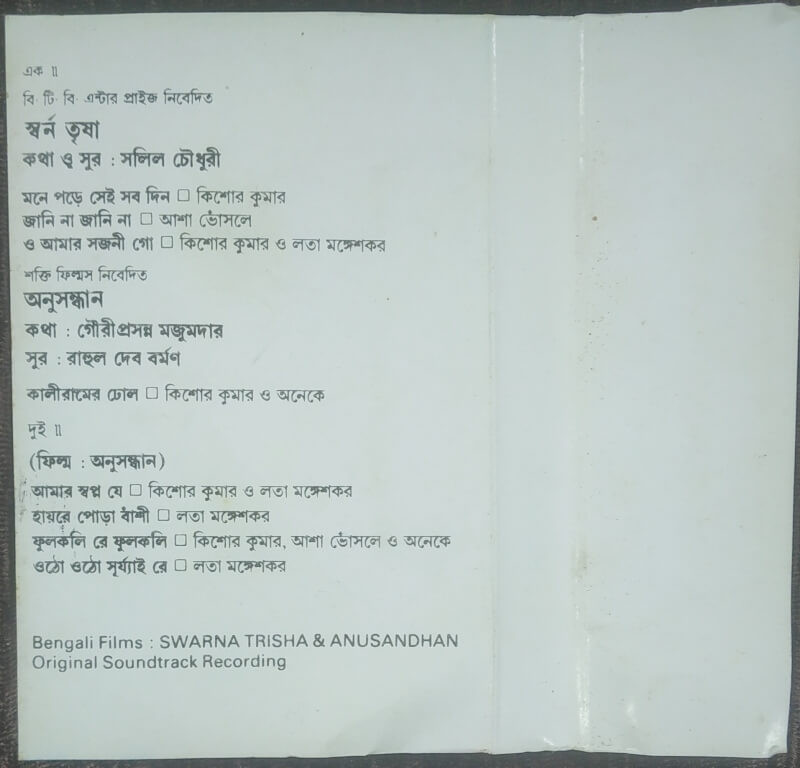 এক ॥
বি. টি. বি. এন্টার প্রাইজ নিবেদিত
স্বর্ন তৃষা
কথা ও সুর : সলিল চৌধুরী
মনে পড়ে সেই সব দিন □ কিশোর কুমার
জানি না জানি না □ আশা ভোঁসলে
ও আমার সজনী গো □ কিশোর কুমার ও লতা মঙ্গেশকর
শক্তি ফিল্মস নিবেদিত
অনুসন্ধান
কথা : গৌরীপ্রসন্ন মজুমদার
সুর : রাহুল দেব বর্মণ
কালীরামের ঢোল □ কিশোর কুমার ও অনেকে
দুই ॥
(ফিল্ম : অনুসন্ধান)
আমার স্বপ্ন যে □ কিশোর কুমার ও লতা মঙ্গেশকর
হায়রে পোড়া বাঁশী □ লতা মঙ্গেশকর
ফুলকলি রে ফুলকলি □ কিশোর কুমার, আশা ভোঁসলে ও অনেকে
ওঠো ওঠো সূর্য্যাই রে □ লতা মঙ্গেশকর
Bengali Films : SWARNA TRISHA & ANUSANDHAN
Original Soundtrack Recording